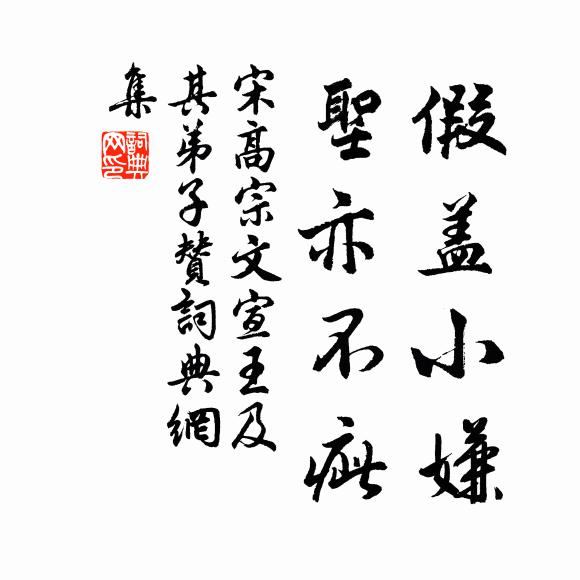 假盖小嫌
聖亦不疵
宋高宗文宣王及
其弟子贊詞典網
集
詞典
网印